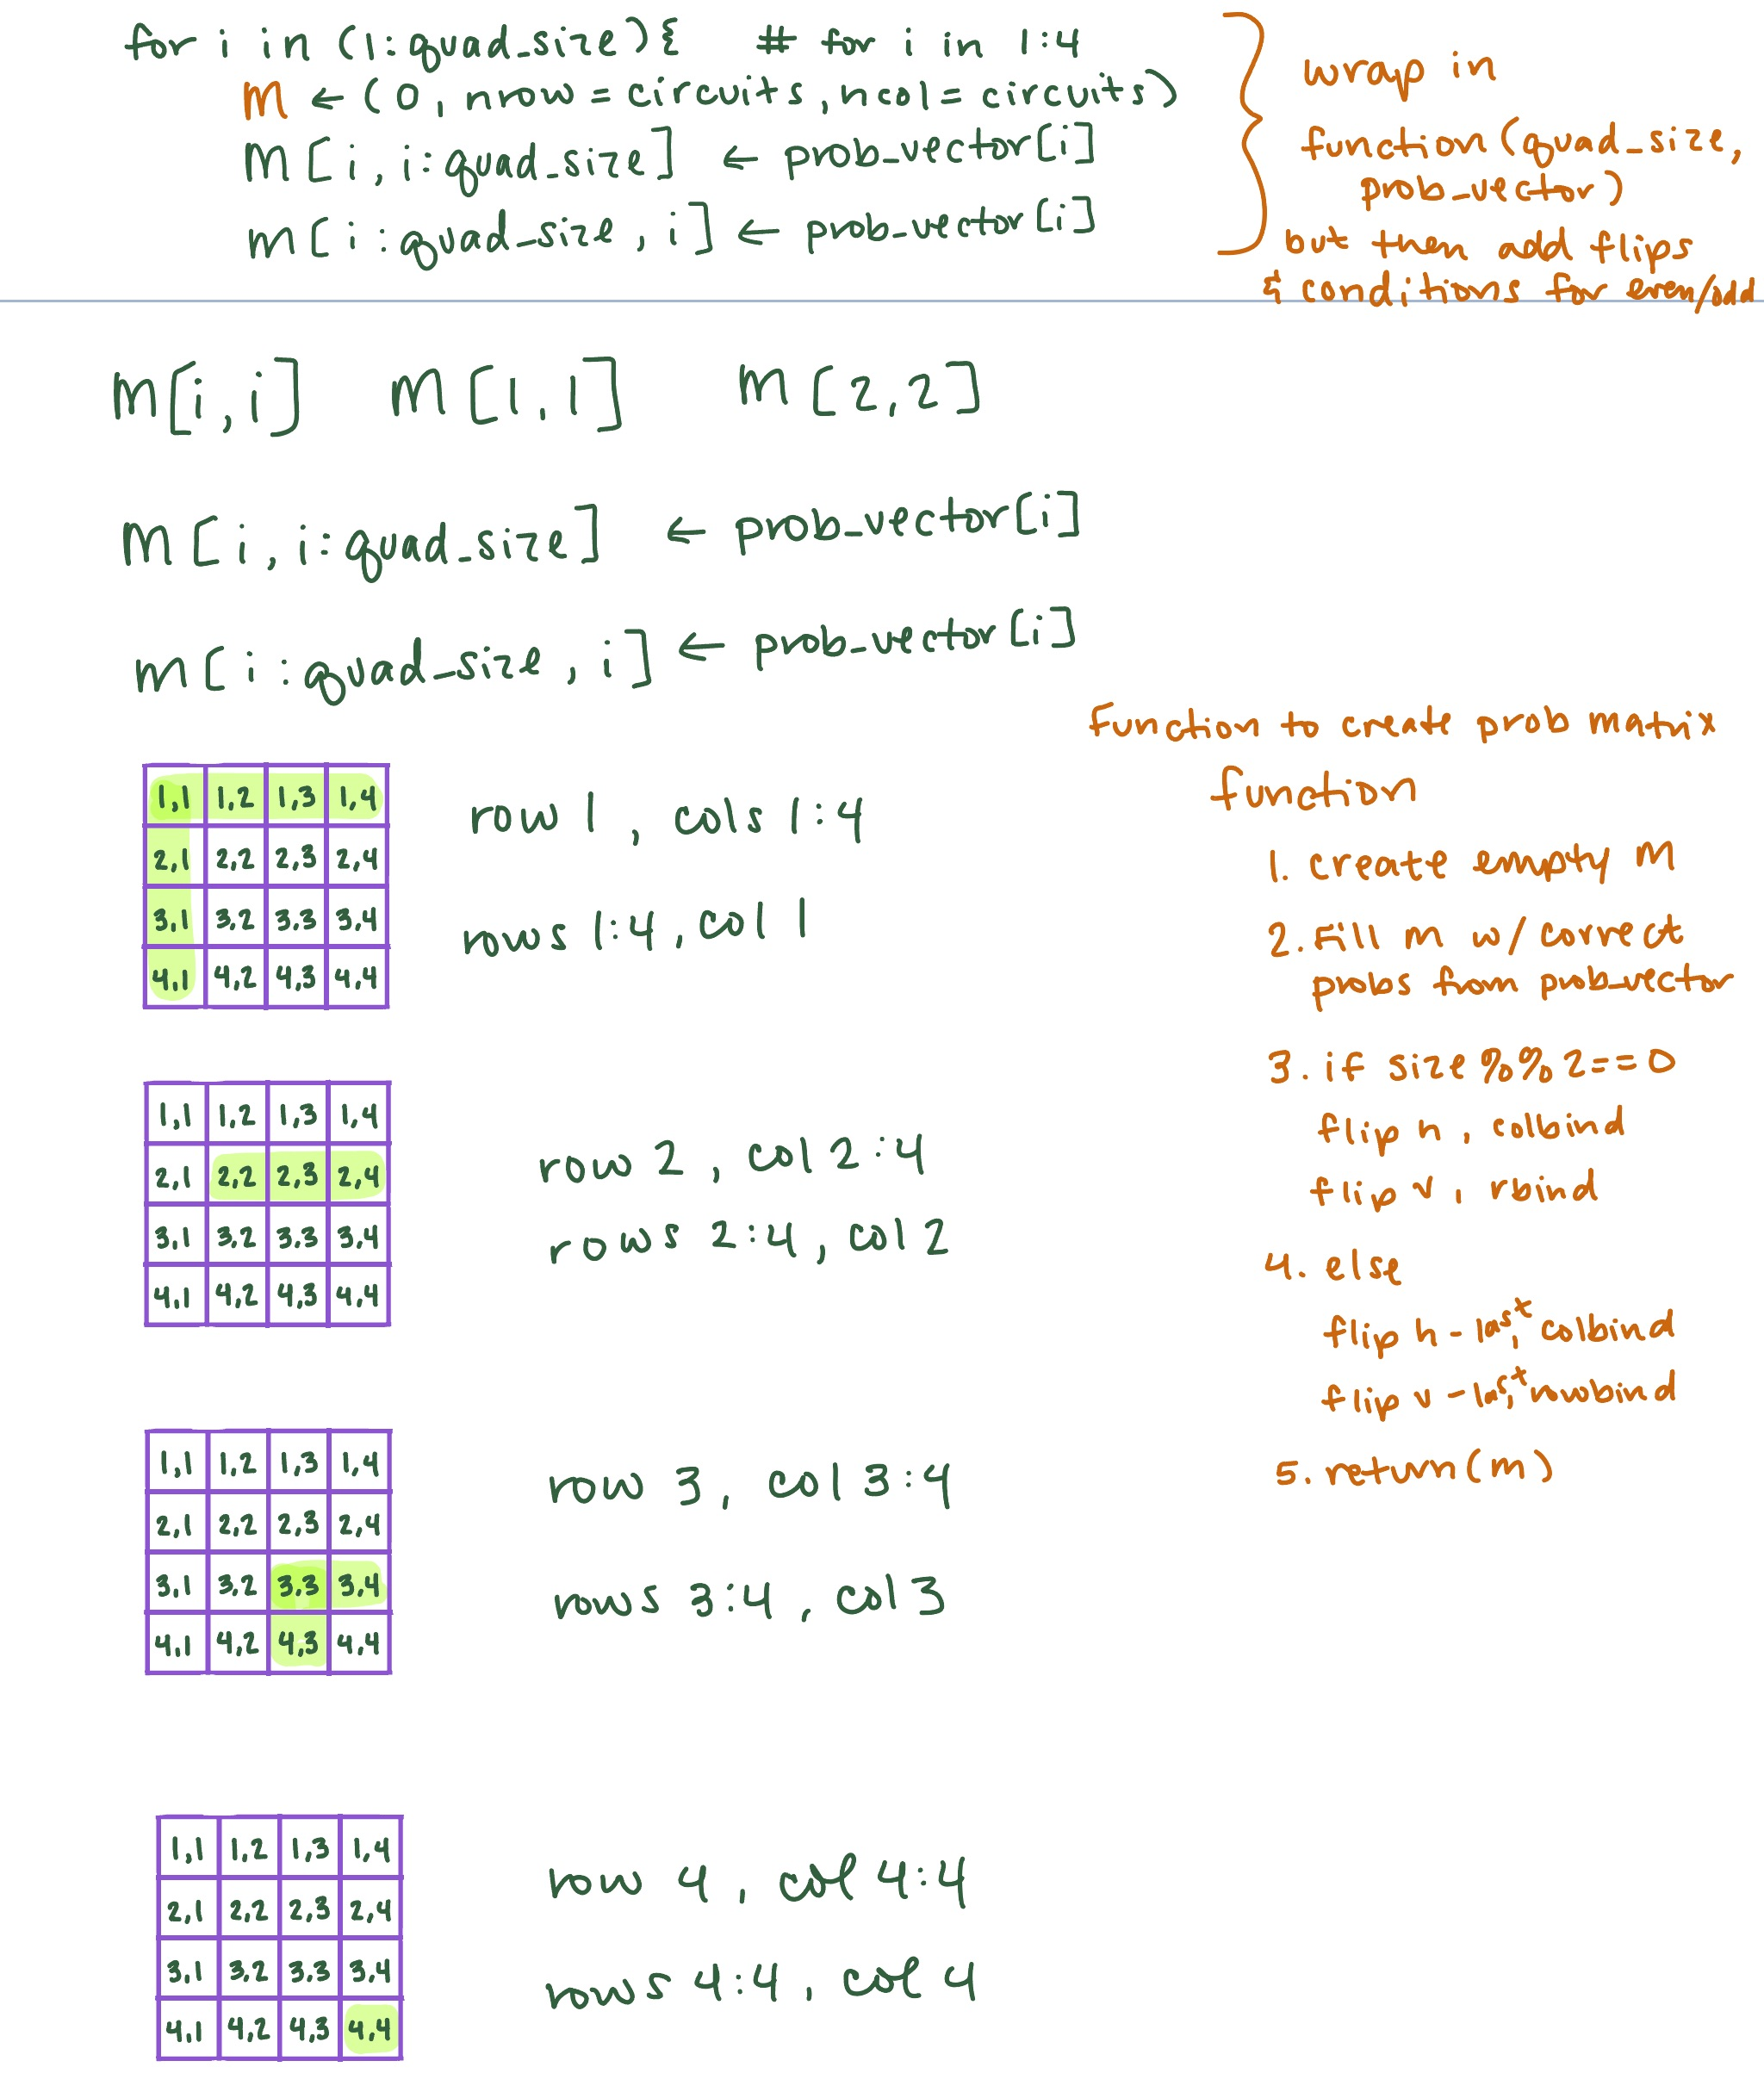 for i in (1:quad_size){ # for i in 1:4
m ← (0, nrow = circuits, ncol = circuits)
m[i, i:quad_size] ← prob_vector[i]
m[i:quad_size, i] ← prob_vector[i]
wrap in
function(quad_size,
prob_vector)
but then add flips
& conditions for even/odd
m[i,i] m[1,1] m[2,2]
m[i, i:quad_size] ← prob_vector[i]
m[i:quad_size, i] ← prob_vector[i]
Function to create prob matrix
function
1. create empty m
2. Fill m w/ correct
probs from prob_vector
3. if size %% 2==0
flip h, colbind
flip v, rbind
4. else
flip h - last, colbind
flip v - last, rowbind
5. return(m)
1,1 1,2 1,3 1,4
2,1 2,2 2,3 2,4
3,1 3,2 3,3 3,4
4,1 4,2 4,3 4,4
row 1, cols 1:4
rows 1:4, col 1
1,1 1,2 1,3 1,4
2,1 2,2 2,3 2,4
3,1 3,2 3,3 3,4
4,1 4,2 4,3 4,4
row 2, col 2:4
rows 2:4, col 2
1,1 1,2 1,3 1,4
2,1 2,2 2,3 2,4
3,1 3,2 3,3 3,4
4,1 4,2 4,3 4,4
row 3, col 3:4
rows 3:4, col 3
1,1 1,2 1,3 1,4
2,1 2,2 2,3 2,4
3,1 3,2 3,3 3,4
4,1 4,2 4,3 4,4
row 4, col 4:4
rows 4:4, col 4